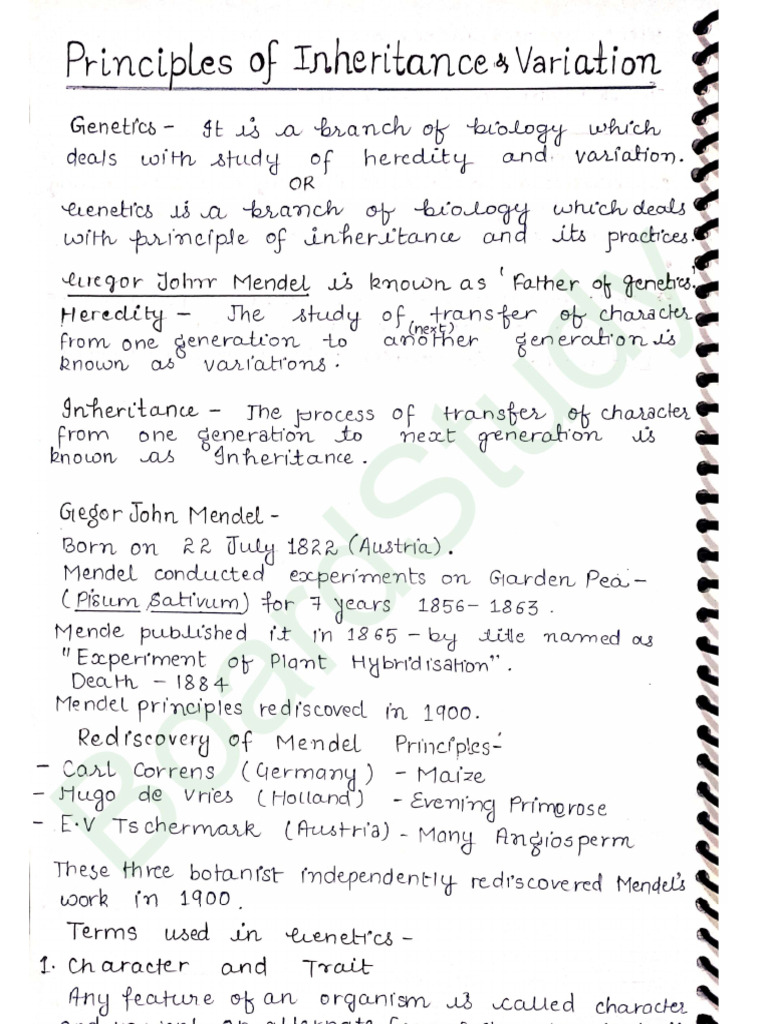 Principles of Inheritance & Variation
Genetics - It is a branch of biology which
deals with study of heredity and variation.
OR
Genetics is a branch of biology which deals
with principle of inheritance and its practices.
Gregor Johnn Mendel is known as 'Father of genetics.'
Heredity - The study of transfer of character
(next)
from one generation to another generation is
known as variations.
Inheritance - The process of transfer of character
from one generation to next generation is
known as Inheritance.
Gregor John Mendel -
Born on 22 July 1822 (Austria).
Mendel conducted experiments on Garden Pea -
(Pisum Sativum) for 7 years 1856 - 1863.
Mende published it in 1865 - by title named as
"Experiment of Plant Hybridisation".
Death - 1884
Mendel principles rediscoved in 1900.
Rediscovery of Mendel Principles -
- Carl Correns (Germany) - Maize
- Hugo de Vries (Holland) - Evening Primerose
- E.V Tschermark (Austria) - Many Angiosperm
These three botanist independently rediscovered Mendel's
work in 1900.
Terms used in Genetics -
1. Character and Trait
Any feature of an organism is called character
BoardStudy